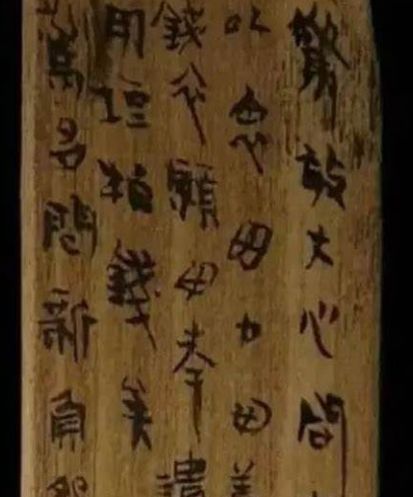 驚敢大心問
以衷母力毋恙
錢衣願母幸遺
用垣柏錢矣
驚多問新負